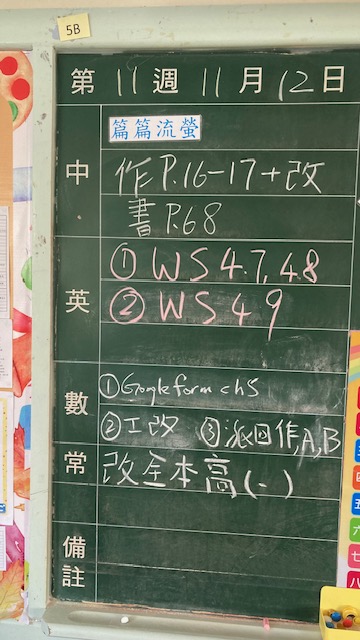 5B
第 11 週 11 月 12 日
篇篇流螢
中
作 P.16-17+改
書 P.68
英
① WS 4.7, 4.8
② WS 4.9
數
① Google form ch5
② 工改 ③ 派回作A,B
常
改全本高(一)
備註
四
五
六
七
八